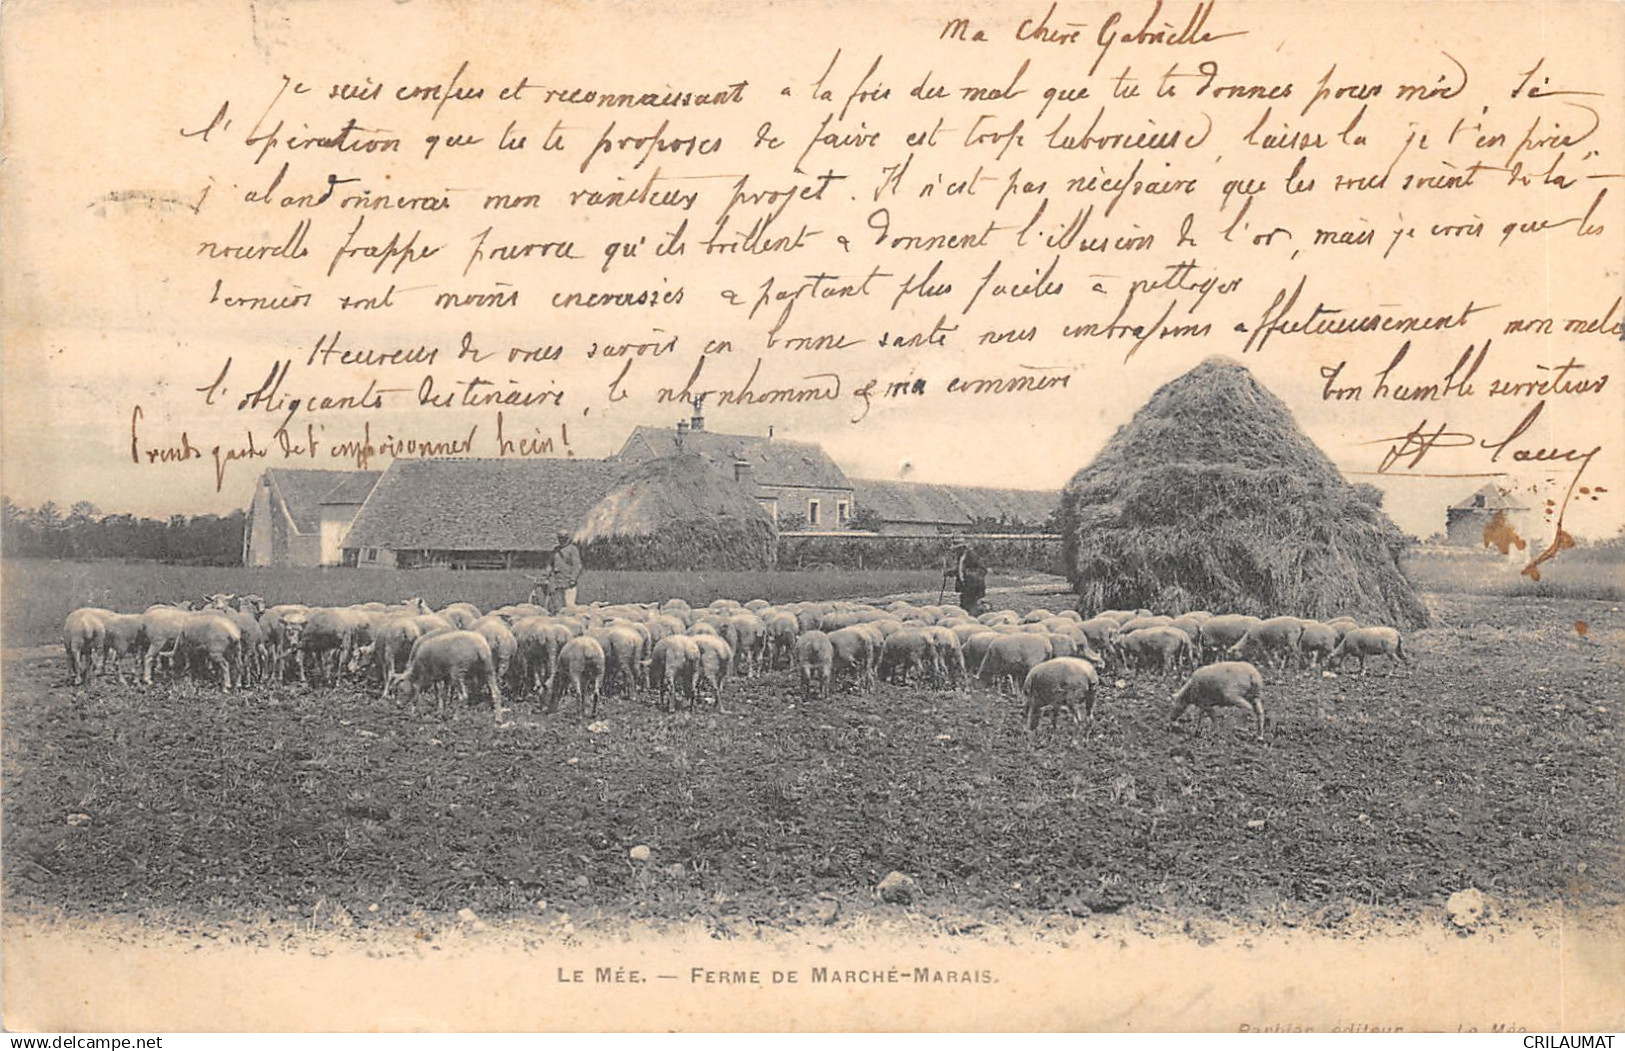 Ma Chère Gabrielle
Je suis confus et reconnaissant à la fois du mal que tu te donnes pour moi, Si
l'opération que tu te proposes de faire est trop laborieuse, laisse la je t'en prie,
j'abandonnerai mon vaniteux projet. Il n'est pas nécessaire que les sous soient de la
nouvelle frappe pourvu qu'ils brillent & donnent l'illusion de l'or, mais je crois que les
derniers sont moins encrassés & partant plus faciles à nettoyer
Heureux de vous savoir en bonne santé nous embrassons affectueusement mon
l'obligeante destinaire, le & ma commère
Ton humble serviteur
Prends garde de t'empoisonner, hein!
LE MÉE. — FERME DE MARCHÉ-MARAIS.
Barbier, éditeur. — Le Mée
https://www.delcampe.net
CRILAUMAT